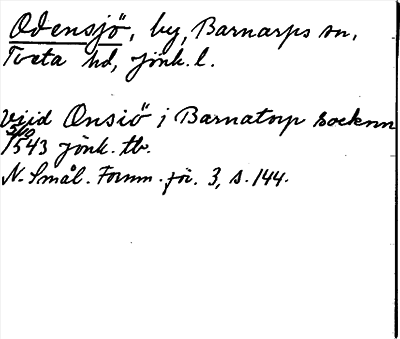 Odensjö, by, Barnarps sn,
Tveta hd, Jönk. l.
viid Onsiö i Barnatorp socknn
5/10
1543 Jönk. tb.
N. Smål. Fornm. för. 3, s. 144.